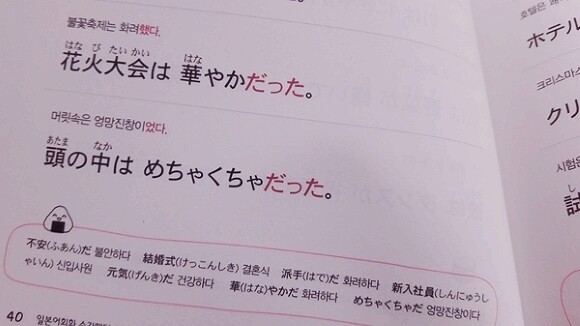 불꽃축제는 화려했다.
はな び たい かい はな
花火大会は 華やかだった。
머릿속은 엉망진창이었다.
あたま なか
頭の中は めちゃくちゃだった。
不安(ふあん)だ 불안하다 結婚式(けっこんしき) 결혼식 派手(はで)だ 화려하다 新入社員(しんにゅうし
ゃいん) 신입사원 元気(げんき)だ 건강하다 華(はな)やかだ 화려하다 めちゃくちゃだ 엉망진창이다
40 일본어회화
호텔은
ホテル
크리스마스
クリ
시험은
し
試